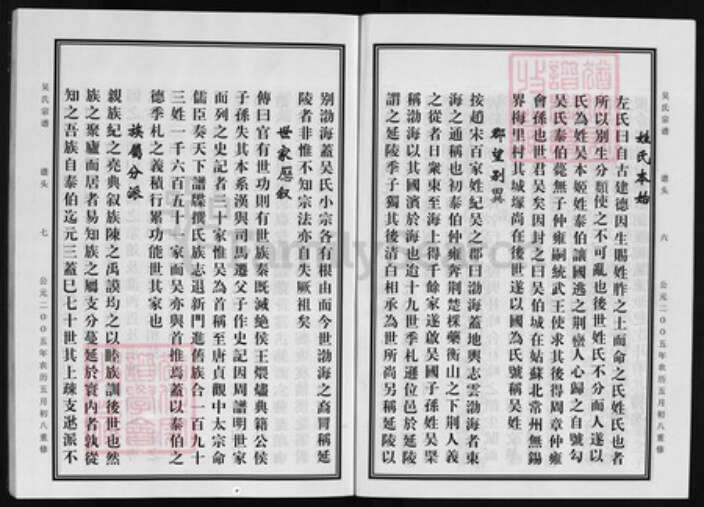 吴氏宗谱　谱头　六　公元二00五年农历五月初八重修
姓氏本始
左氏曰自古建德因生賜姓胙之土而命之氏姓氏也者
所以别生分類使之不可亂也後世姓氏不分而人遂以
氏為姓吴本姬姓泰伯讓國逃之荆巒人心歸之自號勾
吴氏泰伯薨無子仲雍嗣統武王使求其後得周章仲雍
會孫也世君吴矣因封之曰吴伯城在姑蘇北常州無錫
界梅里村其城塚尚在後世遂以國為氏號稱吴姓
郡望别異
按趙宋百家姓紀吴之郡曰渤海蓋地輿志雲渤海者東
海之通稱也初泰伯仲雍奔荆楚棌藥衡山之下荆人義
之從者日衆東至海上得千餘家遂啟吴國子孫姓吴栗
稱渤海以其國濱於海也逾十九世季札遜位邑於延陵
謂之延陵季子獨其後清白相承為世所尚另稱延陵以
别渤海蓋吴氏小宗各有根由而今世渤海之裔胃稱延
陵者非惟不知宗法亦自失厥祖矣
世家歷叙
傳曰官有世功則有世族秦既滅絶侯王煨燼典籍公侯
子孫失其本系漢與司馬遷父子作史記因周譜明世家
而列之史記者三十家惟吴為首稱至唐貞觀中太宗命
儒臣奏天下譜牒撰氏族志退新門進舊族合一百九十
三姓一千六百五十一家而吴亦與首推焉蓋以泰伯之
德季札之義積行累功能世其家也
族屬分派
親族紀之堯典叙族陳之禹謨均之以睦族訓後世也然
族之聚廬而居者易知族之屬支分蔓延於寰内者孰從
知之吾族自泰伯迄元三蓋巳七十世其上疎支逖派不
吴氏宗谱　谱头　七　公元二00五年农历五月初八重修
FamilySearch